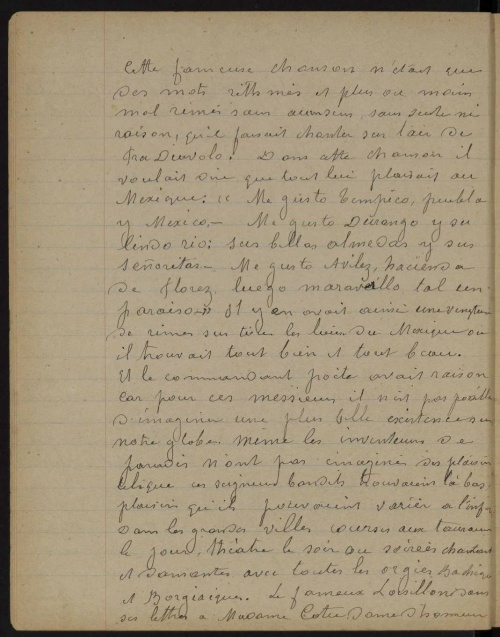 Cette fameuse chanson n'était que
des mots rithmés et plus ou moins
mal rimés sans aucun sens, sans suite ni
raison, qu'il faisait chanter sur l'air de
Fra Diavolo. Dans cette chanson il
voulait dire que tout lui plaisait au
Mexique: « Me gusto Tempico, puebla
y Mexico, – Me gusto Durango y su
lindo rio; sus bellas almedas y sus
señoritas – Me gusto Avilez, hacienda
de florez, luego maravillo tal un
paraiso » et y en avait ainsi une vingtaine
de rimes sur tous les lieux du Mexique ou
il trouvait tout bien et tout beau.
Et le commandant poète avait raison
car pour ces messieurs il n'est pas possible
d'imaginer une plus belle existence sur
notre globe. même les inventeurs de
paradis n'ont pas imaginé des plaisirs
que ces seigneurs bandits trouvaient là bas
plaisirs qu'ils pouvaient varier a l'infini
Dans les grandes villes courses aux taureaux
le jour, théatre le soir ou soirées chantantes
et dansantes avec toutes les orgies
et Borgiaiques. Le fameux Loisillon dans
ses lettres a Madame Cornu dame d'honneur